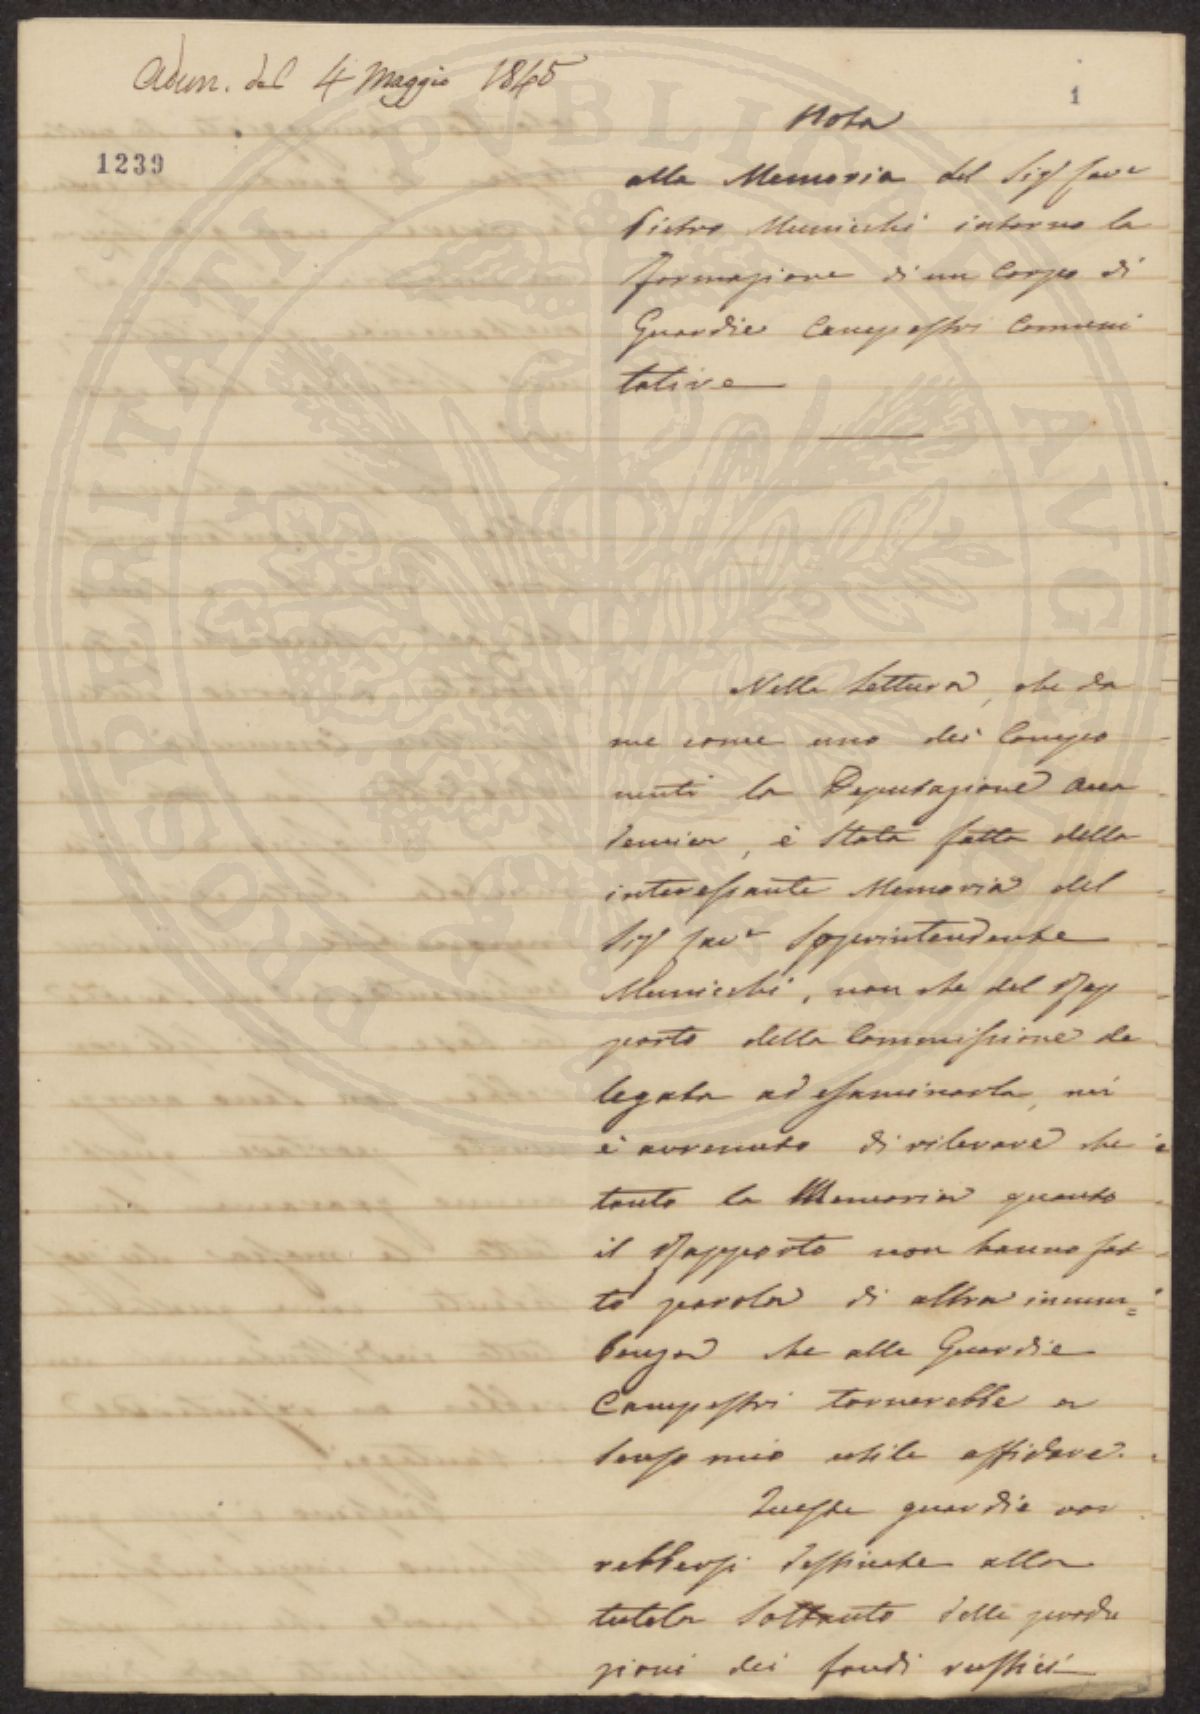 Adun. del 4 Maggio 1845
1
1239
Nota
alla Memoria del Sigr Cavr
Pietro Municchi intorno la
formazione di un Corpo di
Guardie Campestri Comuni
tative
Nella Lettura, che da
me come uno dei Compo
nenti la Deputazione Acca
demica, è stata fatta della
interessante Memoria del
Sigr Cavr Soprintendente
Municchi, non che del Rap
porto della Commissione de
legata ad esaminarla, mi
è avvenuto di rilevare che
tanto la Memoria quanto
il Rapporto non hanno fat
to parola di altra incum=
benza che alle Guardie
Campestri tornerebbe a
senso mio utile affidare.
Queste guardie vor
rebbersi destinate alla
tutela soltanto delle produ
zioni dei fondi rustici
PROSPERITATI PUBLICAE AUGENDAE